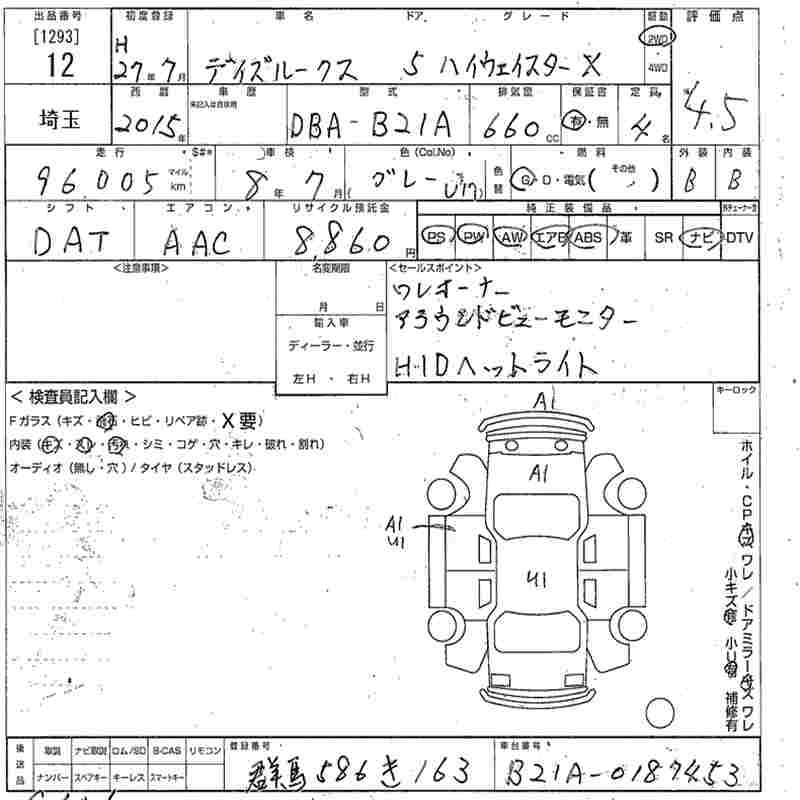 出品番号 初度登録 車名 ドア グレード 駆動 評価点
[1293] H 2WD
12 27年7月 デイズルークス 5 ハイウェイスター X 4WD
西暦 車歴 型式 排気量 保証書 定員 4.5
未記入は自家用
埼玉 2015年 DBA-B21A 660cc 有・無 4名
走行 $#* 車検 色(Col.No) 燃料 外装 内装
96,005 マイル km 8年7月 グレー 色替 G・D・電気(その他 ) B B
シフト エアコン リサイクル預託金 純正装備品
DAT AAC 8,860円 PS PW AW エアB ABS 革 SR ナビ DTV
<注意事項> 名変期限 <セールスポイント>
月 日 ワンオーナー
輸入車 アラウンドビューモニター
ディーラー・並行
左H ・ 右H HIDヘッドライト
<検査員記入欄> キーロック
Fガラス(キズ・飛石・ヒビ・リペア跡・X要)
内装(キズ・スレ・汚れ・シミ・コゲ・穴・キレ・破れ・割れ)
オーディオ(無し・穴)/タイヤ(スタッドレス)
A1
A1
A1
U1
U1
ホイル・CPキズ ワレ/ドアミラーキズ ワレ
小キズ 小U 補修有
後送品 取説 ナビ取説 ロム/SD B-CAS リモコン 登録番号 車台番号
ナンバー スペアキー キーレス スマートキー 群馬 586 き 163 B21A-0187453